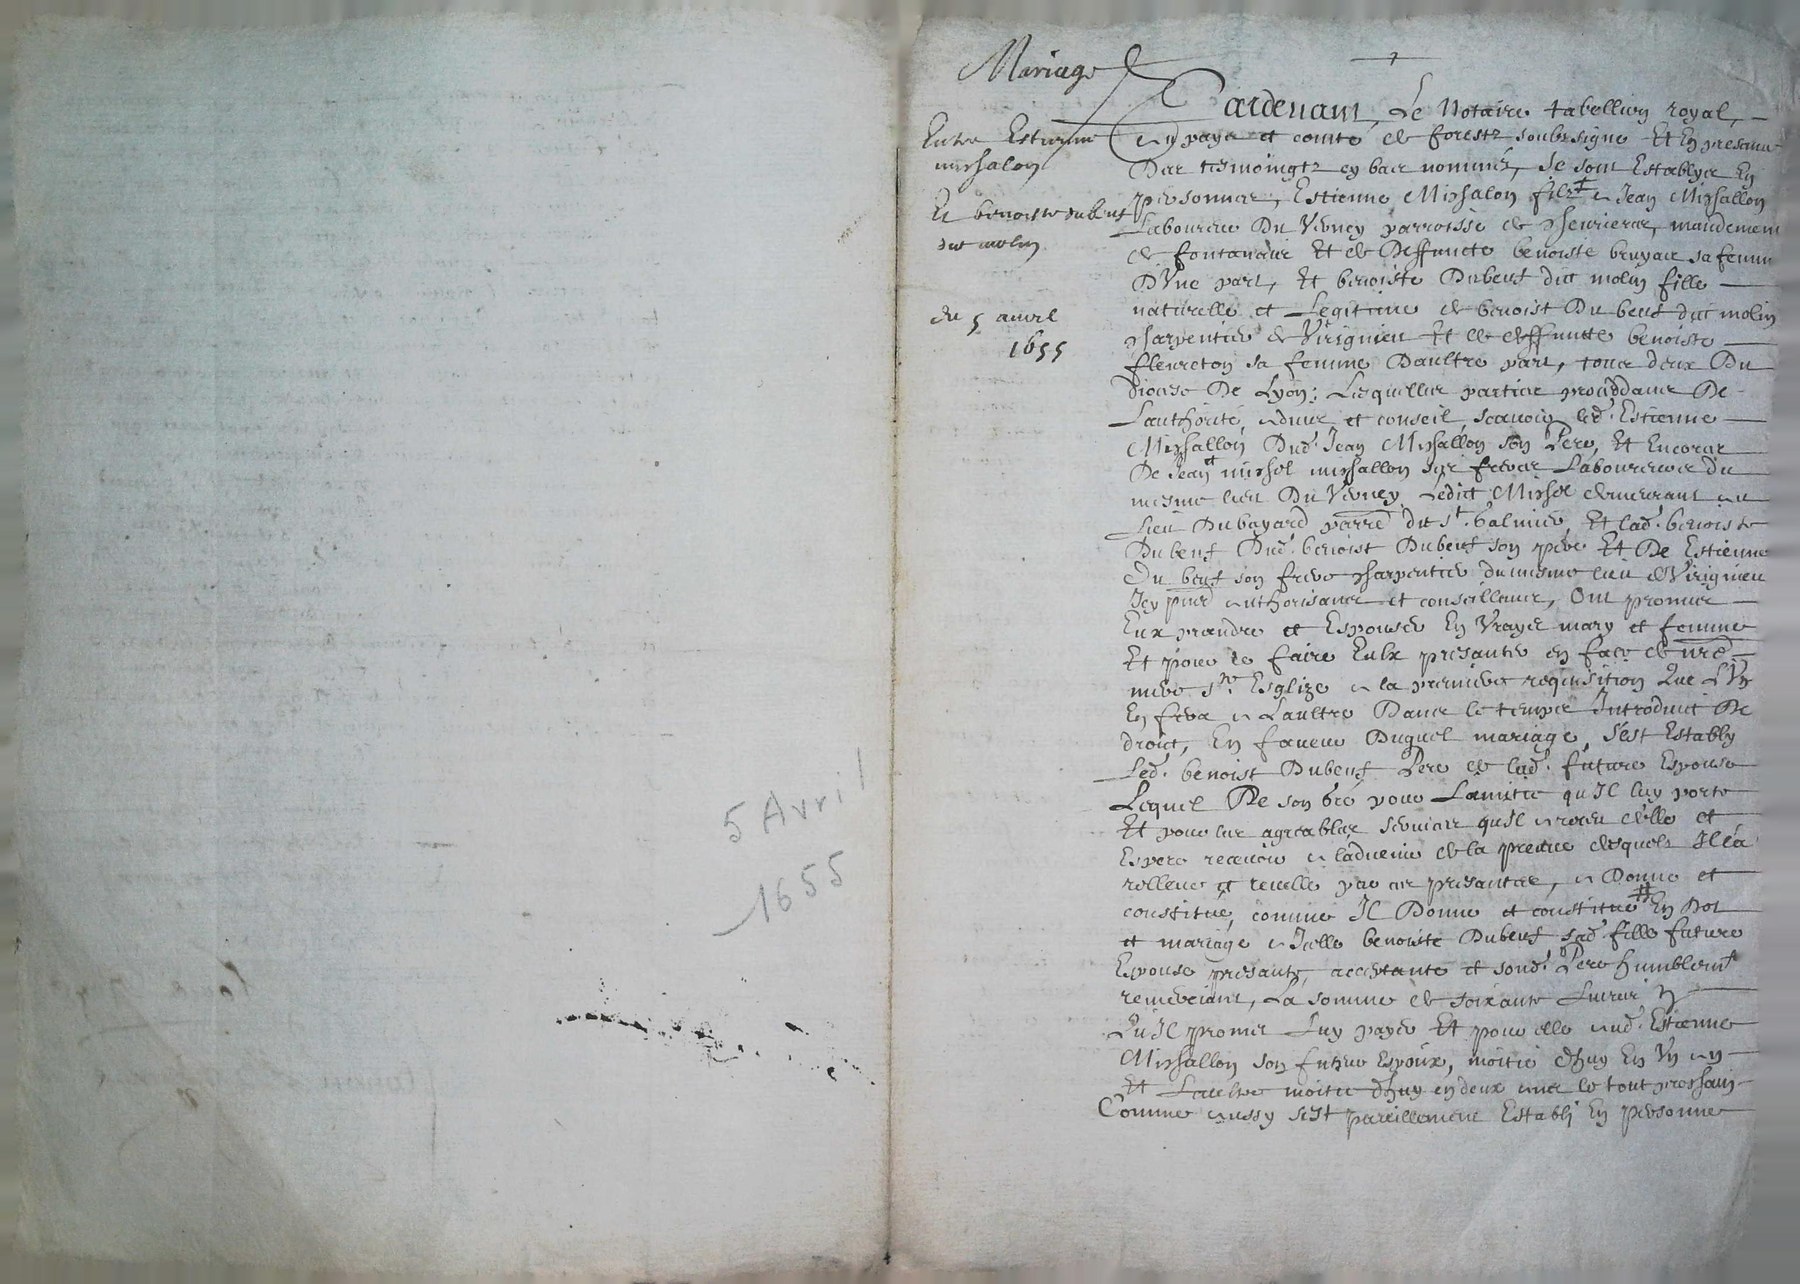 5 Avril
1655
Mariage
Entre Estienne
mischalon
Et benoiste dubeuf
dit molin
du 5 avvril
1655
Pardevant, Le Notaire tabellion royal,
au pays et comté de forestz soubzsigné Et En presance
Des tesmoingtz cy bas nommés, Se sont Establys En
personnes, Estienne Mischalon filz à Jean Mischallon
Laboureur Du Verney parroisse de chevrieres, mandement
de fontanès Et de Deffuncte benoiste bruyas sa femme
D'Vne part, Et benoiste Dubeuf dit molin fille
naturelle et Legitime de benoist Du beuf dit molin
charpentier de Virignieu Et de deffuncte benoiste
fleureton sa femme D'aultre part, tous deux Du
diocese De Lyon; Lesquelles parties proceddans De
L'authorité, advis et conseil, scavoir led. Estienne
Mischallon Dud. Jean Mischallon son Pere, Et Encores
De Jean et mischel mischallon ses freres Laboureurs du
mesme lieu Du Verney, Ledict Mischel demeurant au
Lieu Dubayard parre de St. Galmier, Et lad. benoiste
Dubeuf Dud. benoist Dubeuf son pere Et De Estienne
Du beuf son frere charpentier du mesme lieu de Virignieu
Icy pnts authorisans et conseillans, Ont promis
Eux prandre et Espouser En Vrays mary et femme
Et pour ce faire Eulx presanter en face de nre
mere Ste. Esglize a la premiere requisition Que L'Vn
En fera a L'aultre Dans le temps Introduict De
droict, En faveur Duquel mariage, s'est Estably
Led. benoist Dubeuf Pere de lad. future Espouse
Lequel De son gré pour L'amitié qu'Il luy porte
Et pour les agreables services qu'Il a receu d'elle et
Espere recevoir a l'advenir de la preuve desquels Il l'a
rellevé et relleve par ces presantes, a Donné et
constitué, comme Il Donne et constitue # En Dot
et mariage a Icelle benoiste Dubeuf sad. fille future
Espouse presante, acceptante et sond. Pere humblemt
remerciant, La somme de soixante Livres
Qu'Il promet Luy payer Et pour elle aud. Estienne
Mischallon son futur Espoux, moitié d'huy En Vn an
Et L'aultre moitié d'huy en deux ans le tout prochain
Comme aussy s'est pareillement Establi En personne